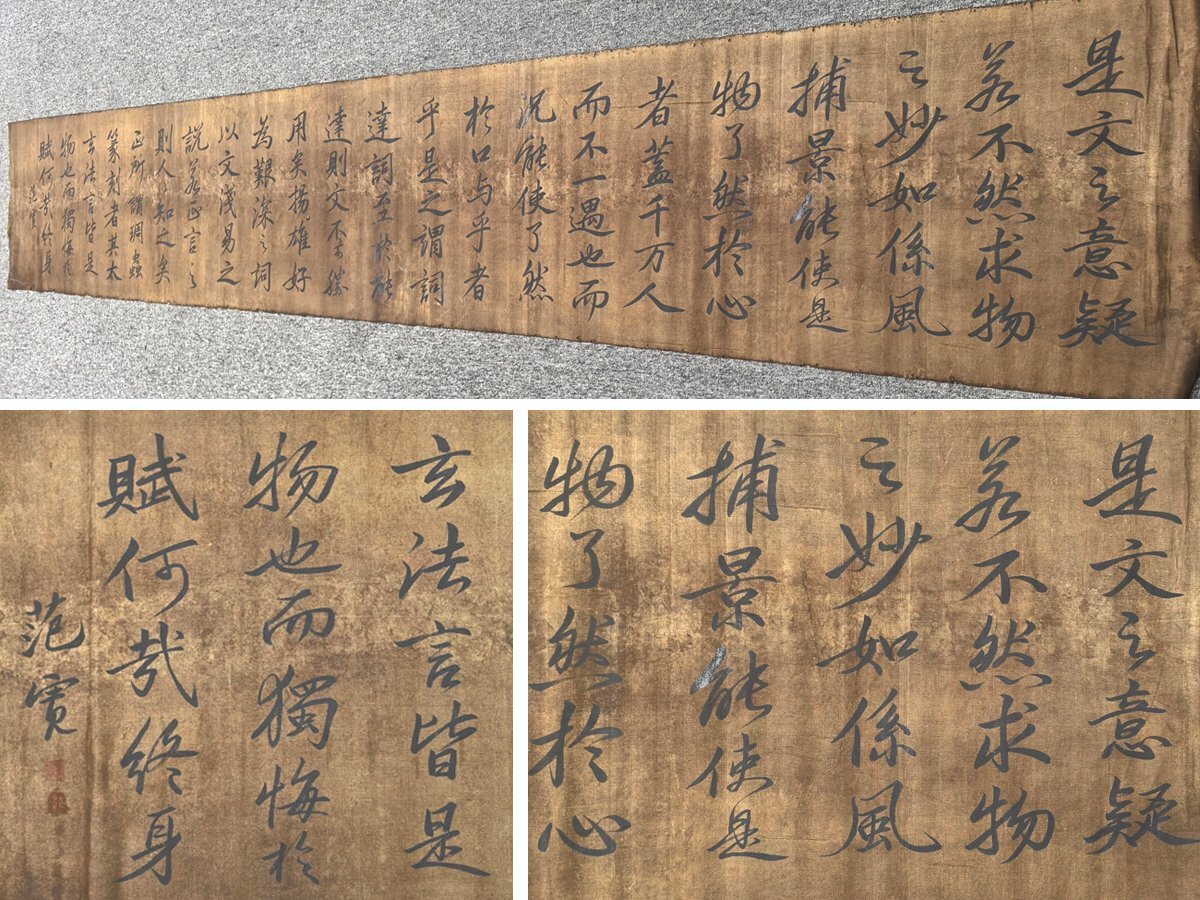 是文之意疑
若不然求物
之妙如係風
捕景能使是
物了然於心
者蓋千万人
而不一遇也而
况能使了然
於口与乎者
乎是之謂詞
達詞至於能
達則文不可勝
用矣揚雄好
為艱深之詞
以文淺易之
說若正言之
則人々知之矣
正所謂琱蟲
篆刻者其太
玄法言皆是
物也而獨悔於
賦何哉終身
范
玄法言皆是
物也而獨悔於
賦何哉終身
范
是文之意疑
若不然求物
之妙如係風
捕景能使是
物了然於心